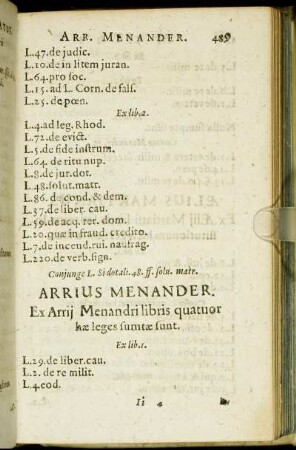 ARR. MENANDER. 489
L.47. de judic.
L.10. de in litem juran.
L.64. pro soc.
L.15. ad L. Corn. de fals.
L.25. de pœn.
Ex lib.2.
L.4. ad leg. Rhod.
L.72. de evict.
L.5. de fide instrum.
L.64. de ritu nup.
L.8. de jur. dot.
L.48. solut. matr.
L.86. de cond. & dem.
L.37. de liber. cau.
L.59. de acq. rer. dom.
L.20. quæ in fraud. credito.
L.7. de incend. rui. naufrag.
L.220. de verb. sign.
Conjunge L. Si dotali. 48. ff. solu. matr.
ARRIUS MENANDER.
Ex Arrij Menandri libris quatuor
hæ leges sumtæ sunt.
Ex lib.1.
L.29. de liber. cau.
L.2. de re milit.
L.4. eod.
Ii 4